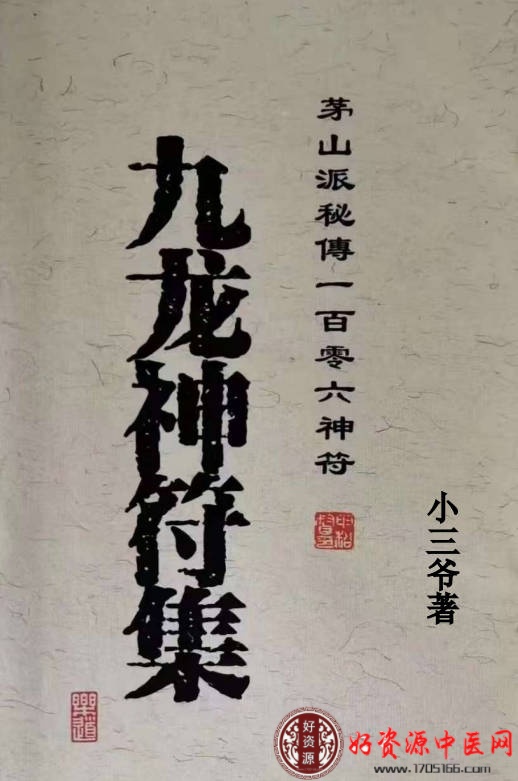 茅山派秘傳一百零六神符
九龙神符集
小三爷著
樂道
好资源
好资源中医网
www.1705166.com